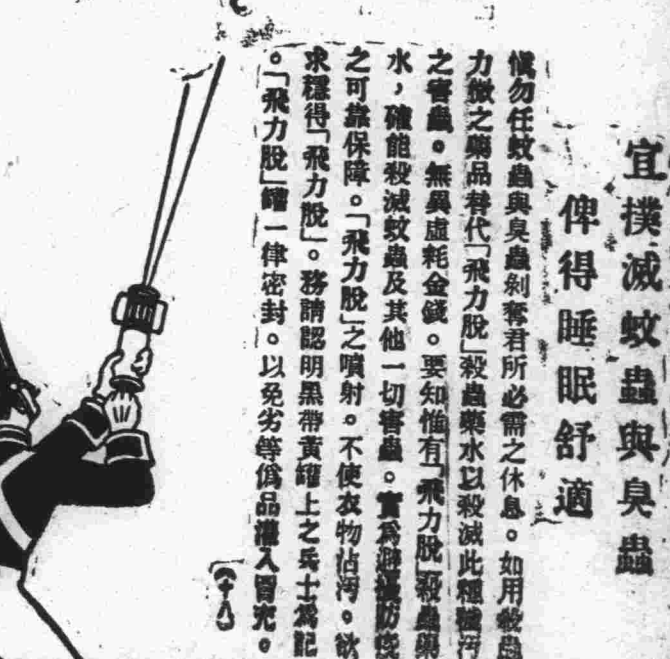 宜撲滅蚊蟲與臭蟲
俾得睡眠舒適
慎勿任蚊蟲與臭蟲剝奪君所必需之休息。如用殺蟲
力微之藥品替代「飛力脫」殺蟲藥水以殺滅此種穢污
之害蟲。無異虛耗金錢。要知惟有「飛力脫」殺蟲藥
水，確能殺滅蚊蟲及其他一切害蟲。實為避擾防疫
之可靠保障。「飛力脫」之噴射。不使衣物沾污。欲
求穩得「飛力脫」。務請認明黑帶黃罐上之兵士為記
。「飛力脫」罐一律密封。以免劣等僞品灌入冒充。
（十八）